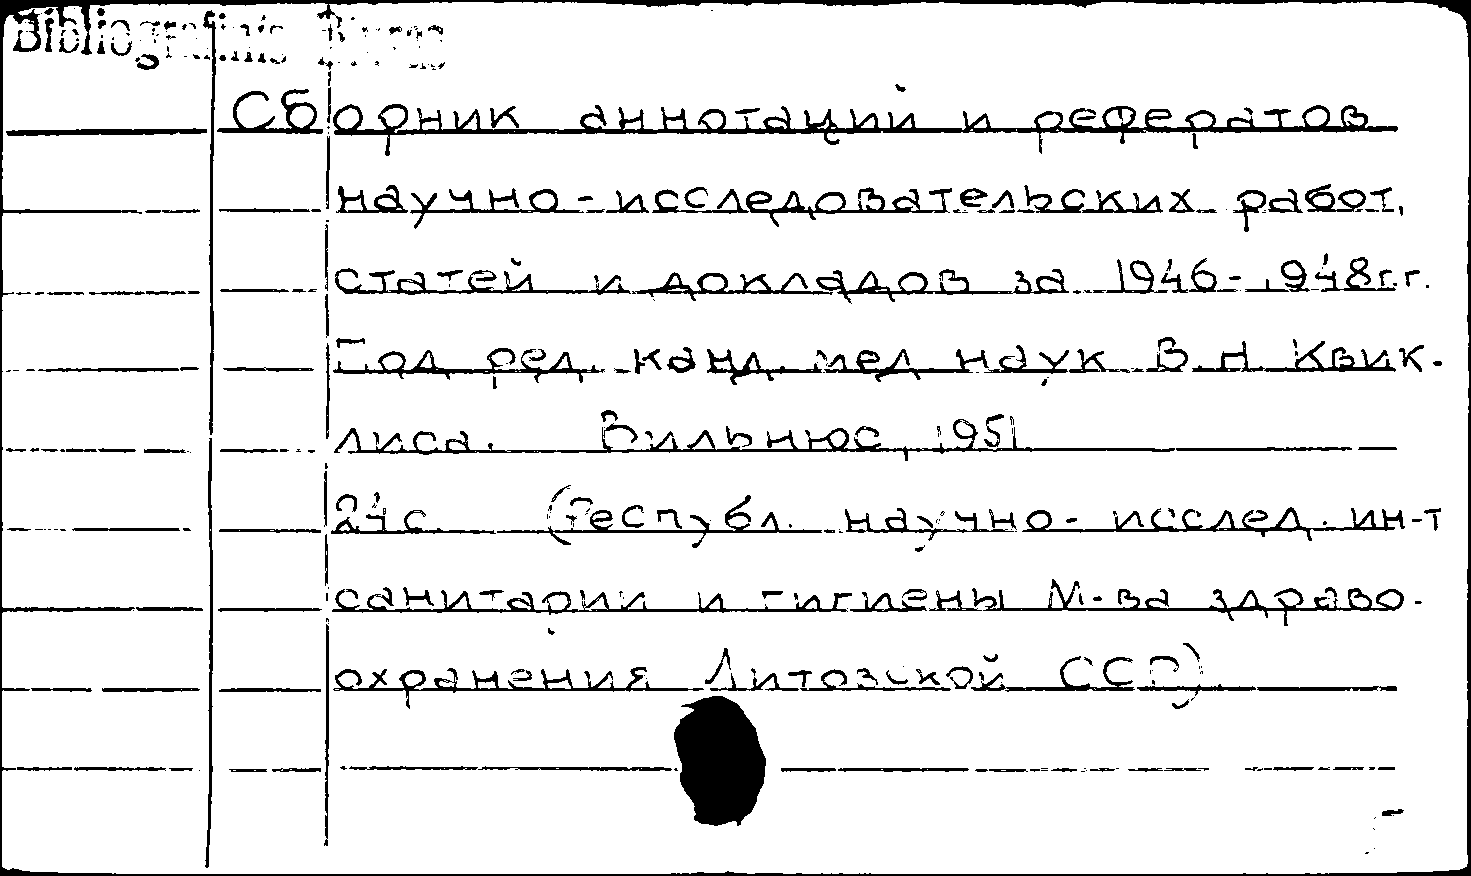 Bibliografinis Biuras
Сборник аннотаций и рефератов
научно-исследовательских работ,
статей и докладов за 1946-1948г.г.
Под ред. канд. мед. наук В.Н. Квик-
лиса. Вильнюс, 1951
24с. (Республ. научно-исслед. ин-т
санитарии и гигиены М-ва здраво-
охранения Литовской ССР).